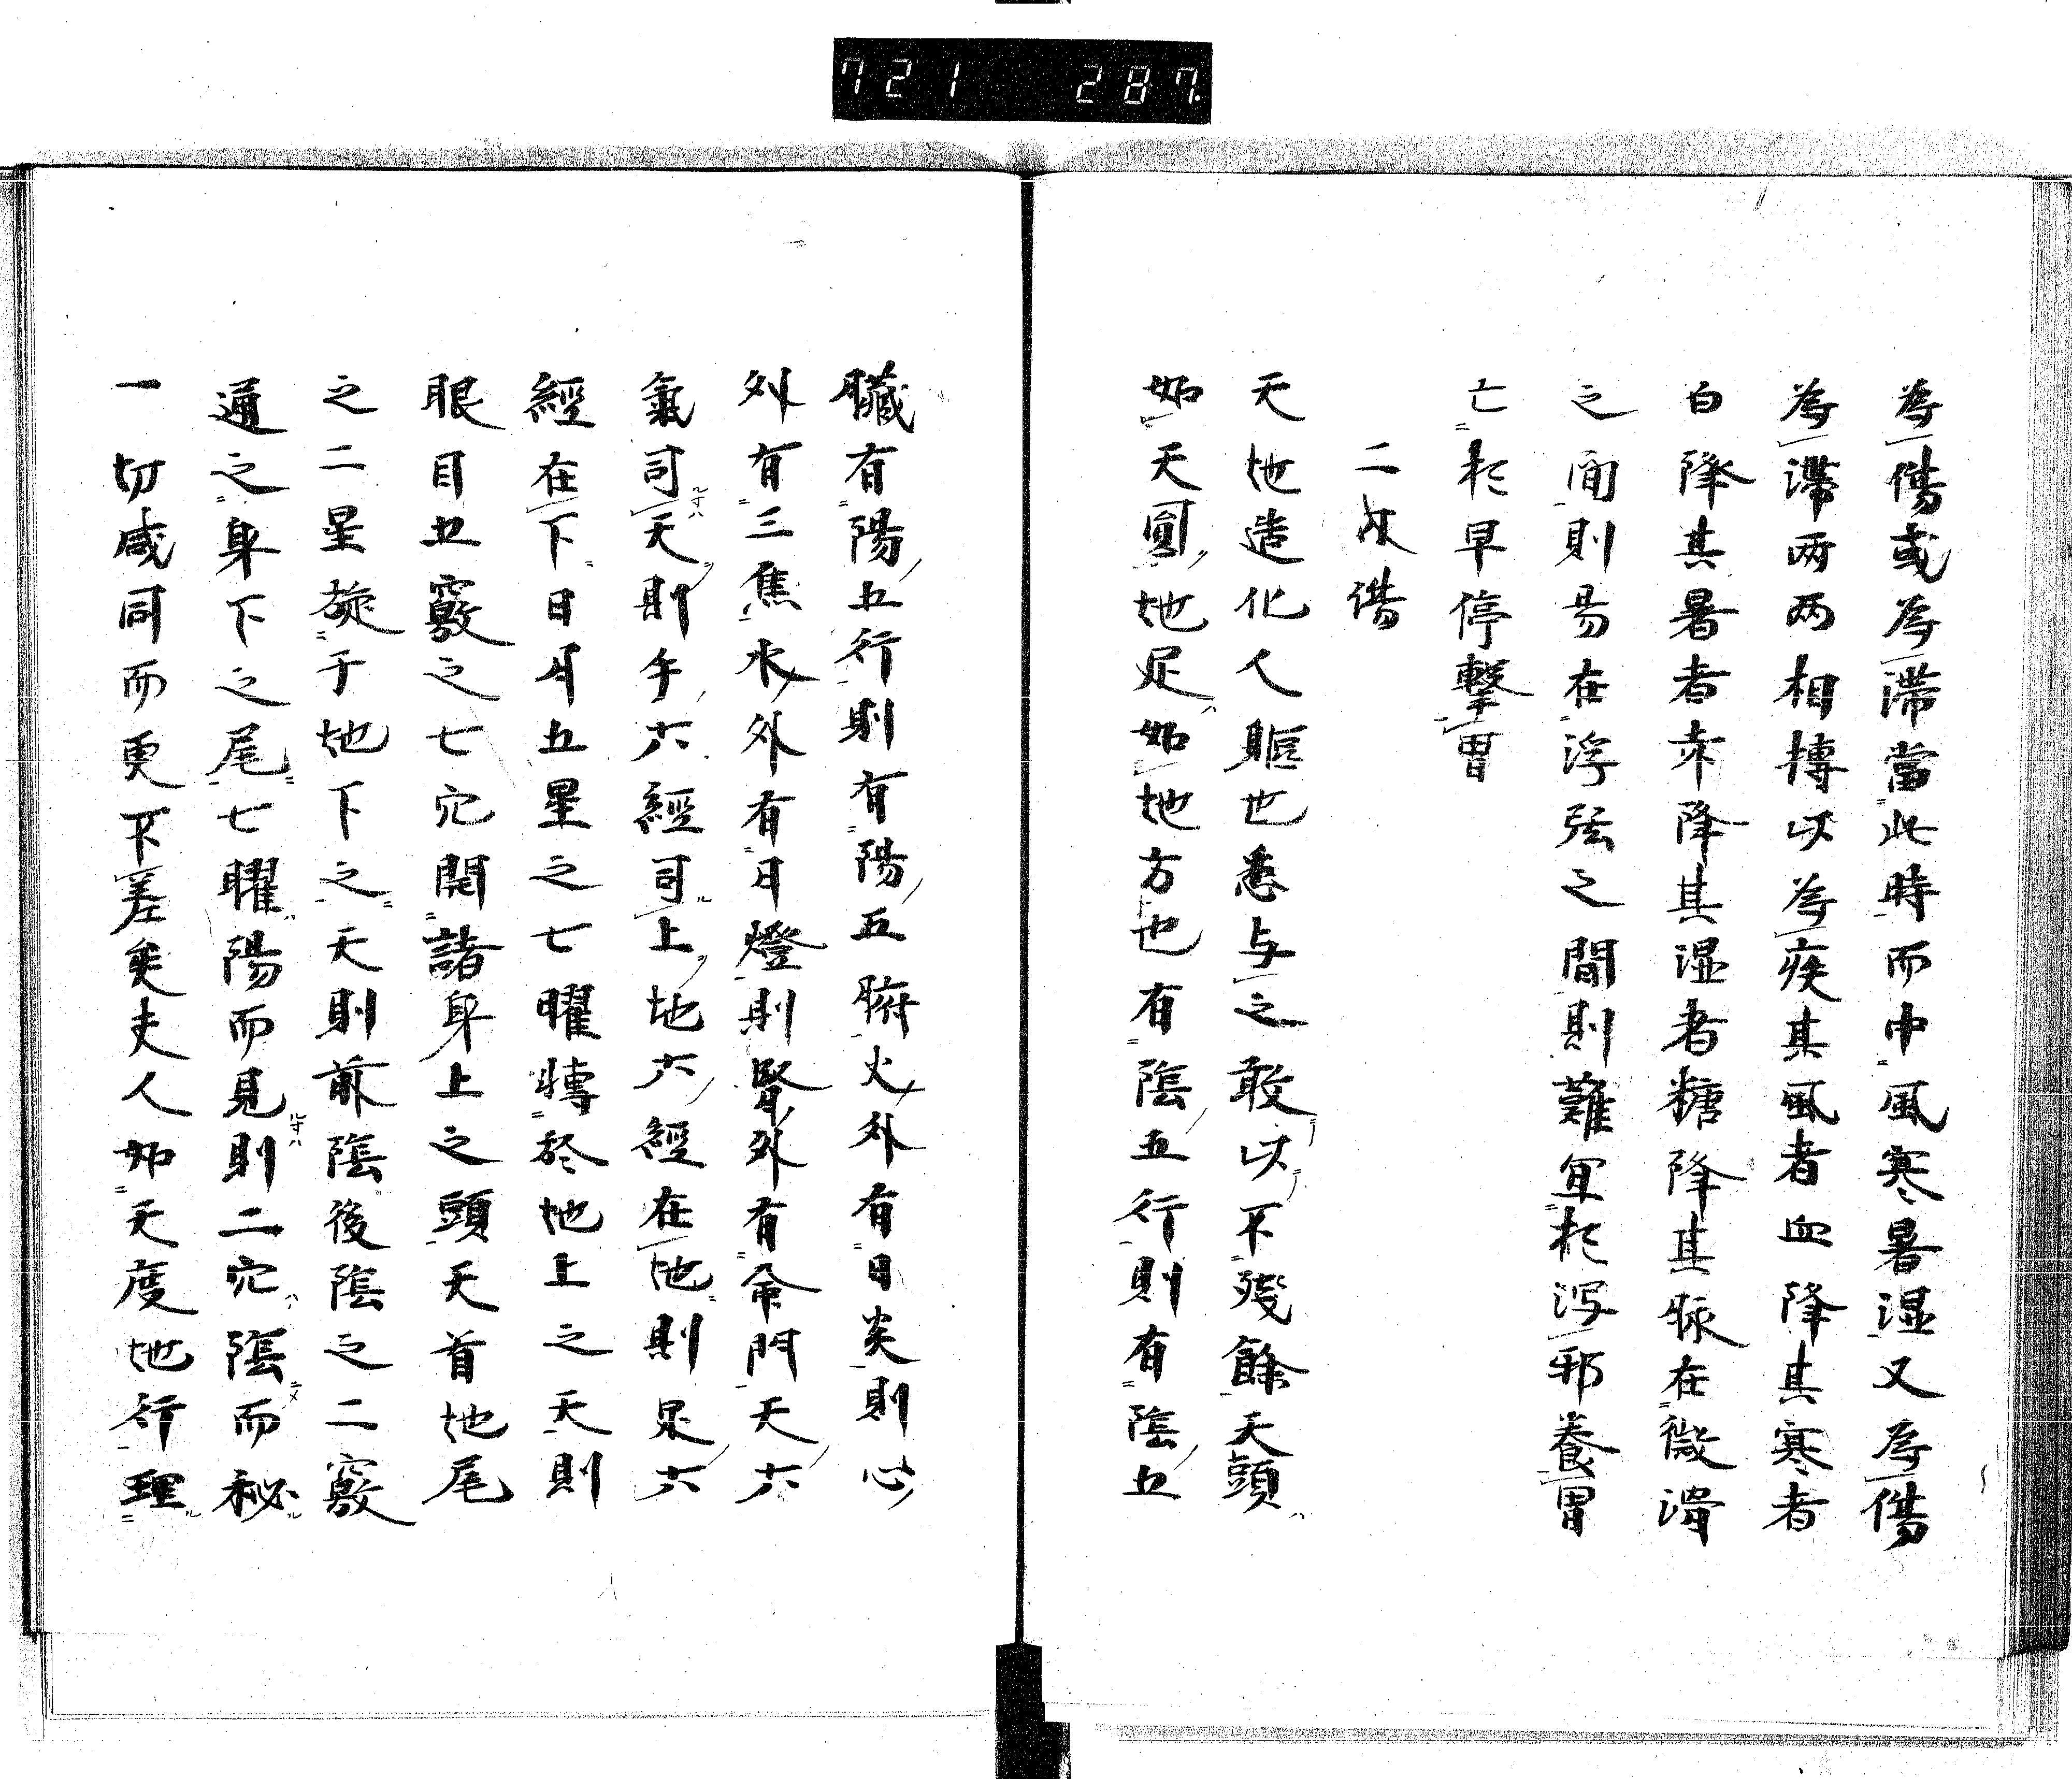 721 287
為傷或為滞當此時而中風寒暑湿又為傷
為滞两两相摶以為疾其風者血降其寒者
白降其暑者赤降其湿者糖降其脉在微滑
之間則易在浮弦之間則難宜於泻邪養胃
亡於早停撃胃
二火傷
天地造化人軀也悉与之敢以不残餘天頭
如天圓地足如地方也有陰五行則有陰五
臓有陽五行則有陽五腑火外有日炎則心
外有三焦水外有月燈則腎外有命門天六
氣司天則手六經司上地六經在地則足六
經在下日月五星之七曜轉於地上之天則
眼目五竅之七穴開諸身上之頭天首地尾
之二星旋于地下之天則前陰後陰之二竅
通之身下之尾七曜陽而見則二穴陰而秘
一切咸同而更不差矣夫人如天度地行理